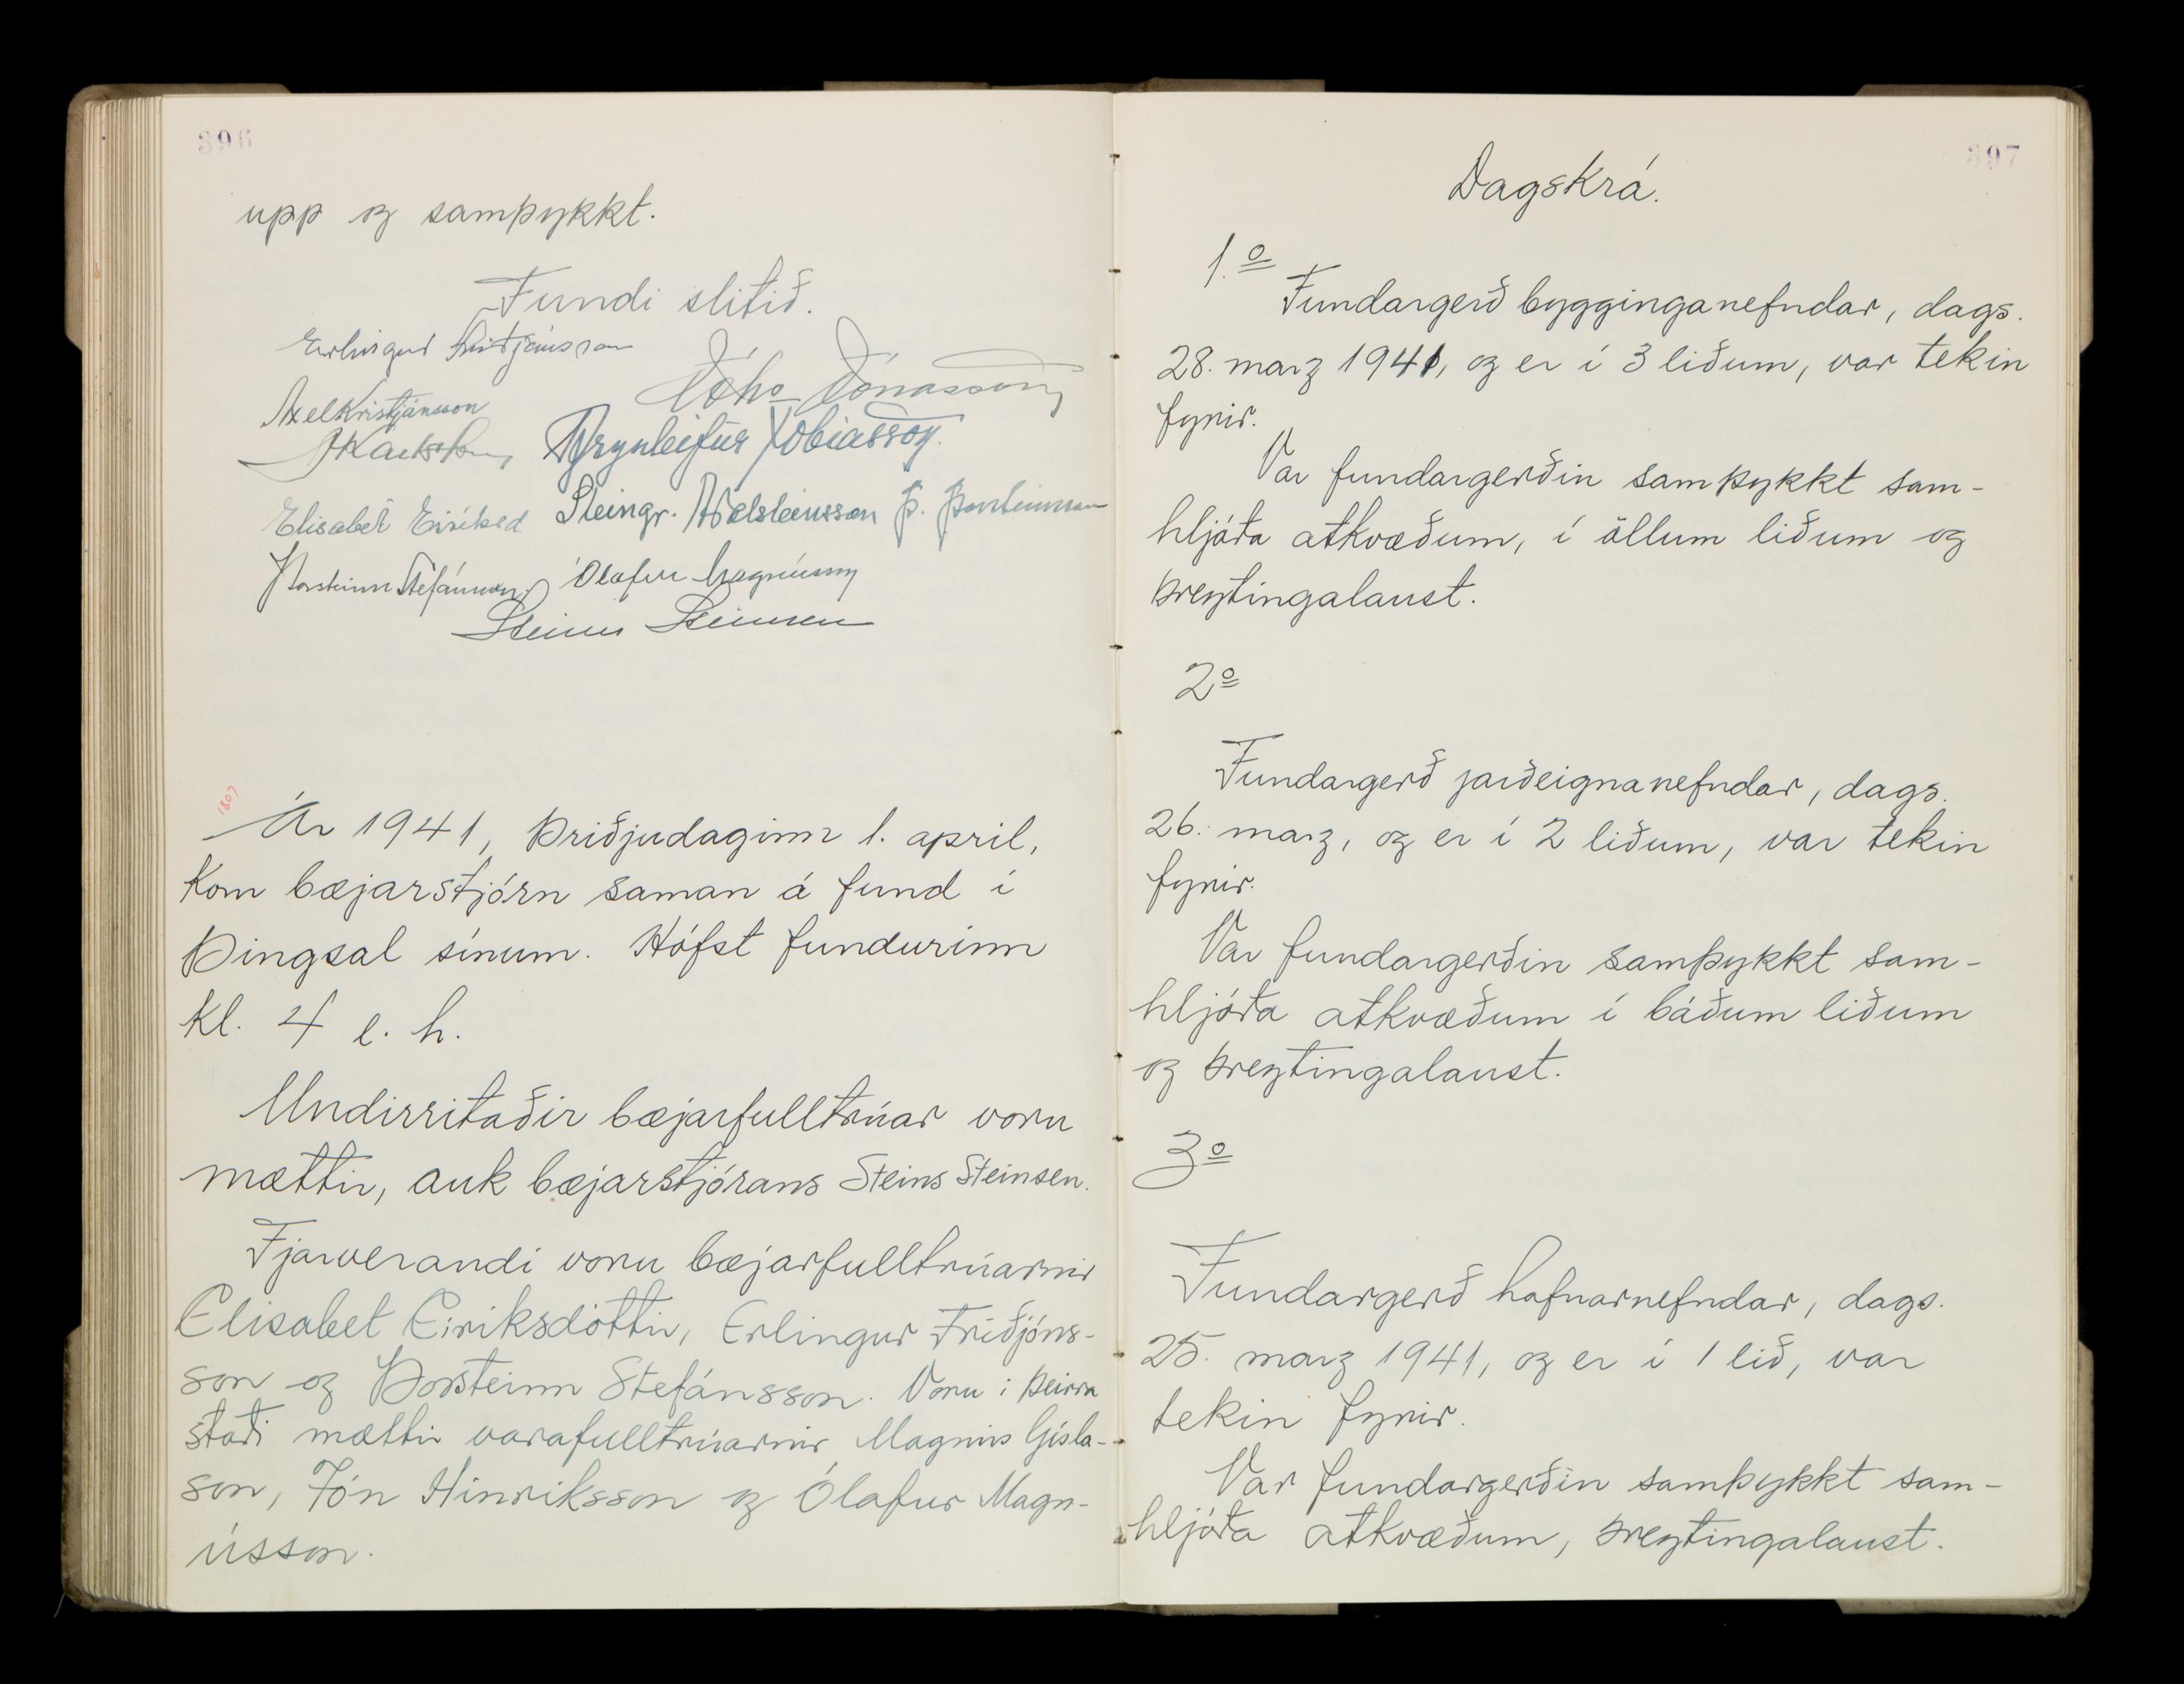 396
upp og samþykkt.
Fundi slitið.
Jóhs Jónasson
Axel Kristjánsson
Brynleifur Tobiasson
Elisabet Eiríksd. Steingr. Aðalsteinsson Þ. Þorsteinsson
Þorsteinn Stefánsson Ólafur Magnússon
Steinn Steinsen
1807
Ár 1941, þriðjudaginn 1. april,
kom bæjarstjórn saman á fund í
þingsal sínum. Hófst fundurinn
kl. 4 e. h.
Undirritaðir bæjarfulltrúar voru
mættir, auk bæjarstjórans Steins Steinsen.
Fjarverandi voru bæjarfulltrúarnir
Elisabet Eiriksdóttir, Erlingur Friðjóns-
son og Þorsteinn Stefánsson. Voru i þeirra
stað mættir varafulltrúarnir Magnús Gísla-
son, Jón Hinriksson og Ólafur Magn-
ússon.
397
Dagskrá.
1.o
Fundargerð bygginganefndar, dags.
28. marz 1941, og er í 3 liðum, var tekin
fyrir.
Var fundargerðin samþykkt sam-
hljóða atkvæðum, í öllum liðum og
breytingalaust.
2o
Fundargerð jarðeignanefndar, dags.
26. marz, og er í 2 liðum, var tekin
fyrir.
Var fundargerðin samþykkt sam-
hljóða atkvæðum í báðum liðum
og breytingalaust.
3o
Fundargerð hafnarnefndar, dags.
25. marz 1941, og er í 1 lið, var
tekin fyrir.
Var fundargerðin samþykkt sam-
hljóða atkvæðum, breytingalaust.